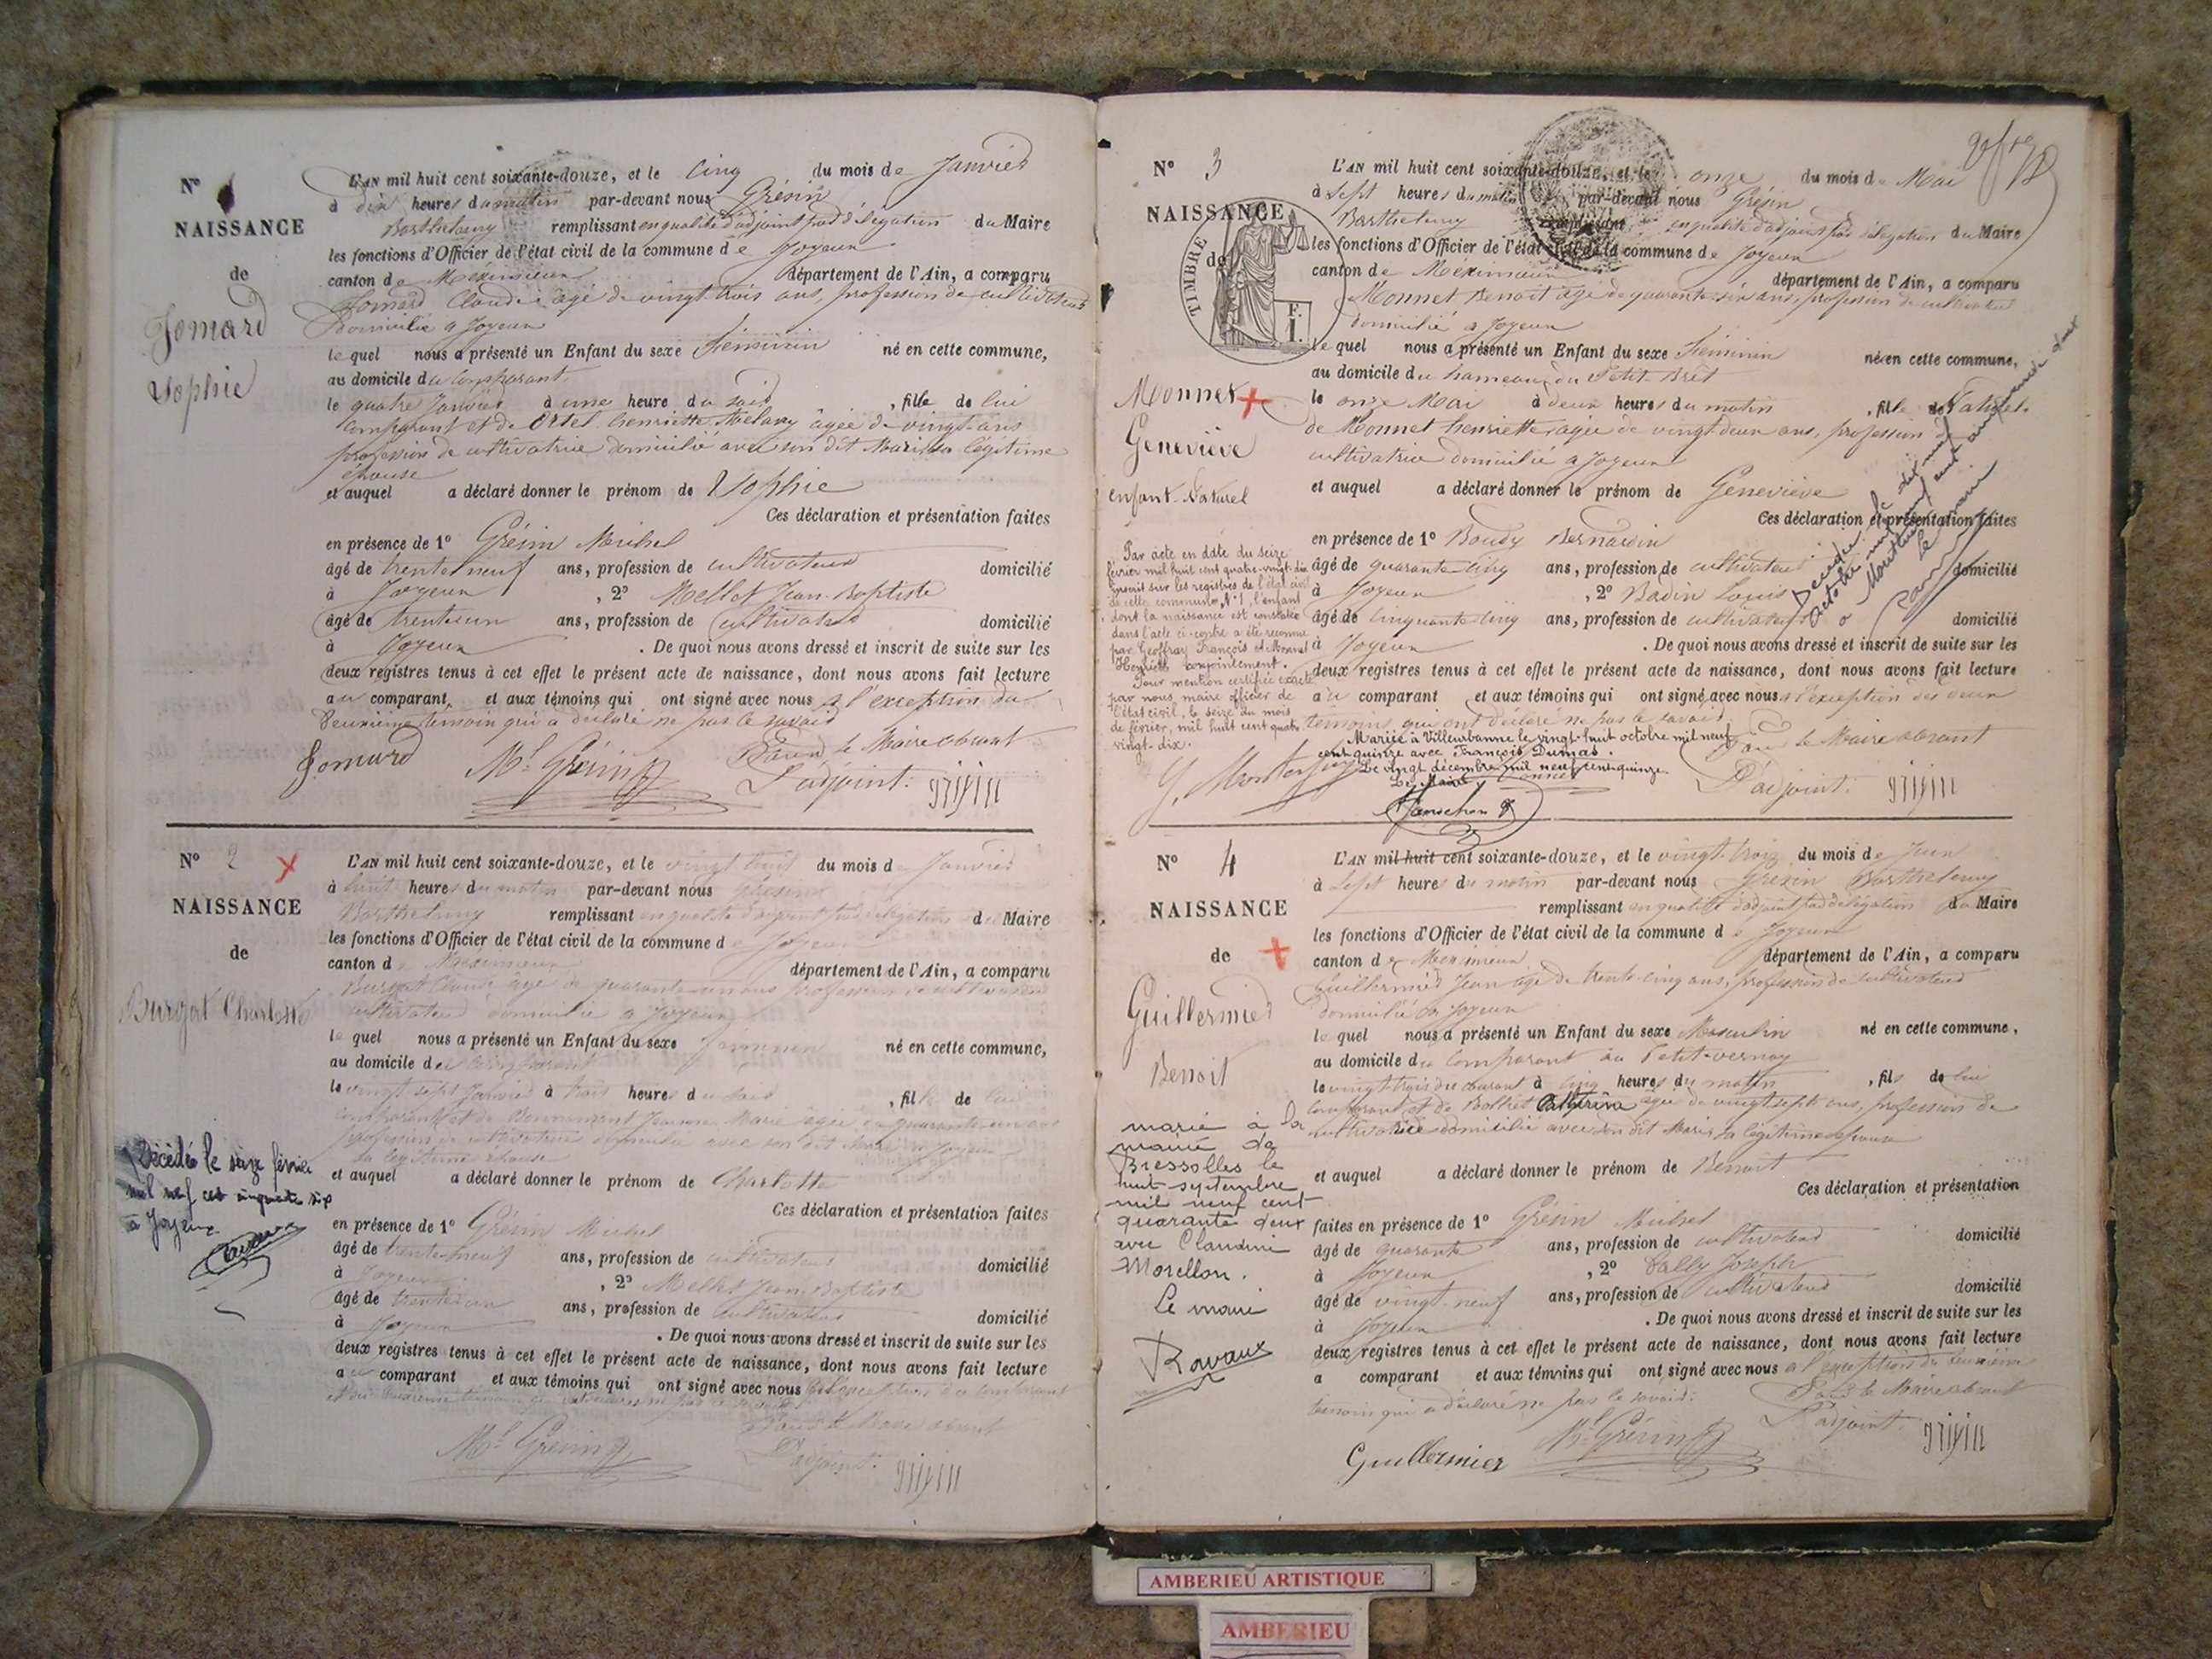 N° 1
NAISSANCE
de
Jomard
Sophie
L'AN mil huit cent soixante-douze, et le cinq du mois de Janvier
à dix heures du matin par-devant nous Grésin
Barthelemy remplissant en qualité d'adjoint par délégation du Maire
les fonctions d'Officier de l'état civil de la commune de Joyeux
canton de Meximieux département de l'Ain, a comparu
Jomard Claude agé de vingt trois ans, profession de cultivateur
domicilié a Joyeux
le quel nous a présenté un Enfant du sexe Féminin né en cette commune,
au domicile du comparant
le quatre Janvier à une heure du soir, fille de lui
comparant et de Ortel henriette Melany agée de vingt ans
profession de cultivatrice domicilié avec son dit Mari, sa légitime
épouse
et auquel a déclaré donner le prénom de Sophie
Ces déclaration et présentation faites
en présence de 1° Grésin Michel
âgé de trente neuf ans, profession de cultivateur domicilié
à Joyeux, 2° Mellet Jean-Baptiste
âgé de trente un ans, profession de cultivateur domicilié
à Joyeux. De quoi nous avons dressé et inscrit de suite sur les
deux registres tenus à cet effet le présent acte de naissance, dont nous avons fait lecture
au comparant et aux témoins qui ont signé avec nous a l'exception du
deuxieme temoin qui a déclaré ne pas le savoir
Jomard Ml Grésin Pour le Maire absent
L'adjoint:
N° 2
NAISSANCE
de
Burgat Charlotte
Décédée le seize février
mil neuf cent cinquante six
à Joyeux
L'AN mil huit cent soixante-douze, et le vingt huit du mois de Janvier
à huit heures du matin par-devant nous Grésin
Barthelemy remplissant en qualité d'adjoint par délégation du Maire
les fonctions d'Officier de l'état civil de la commune de Joyeux
canton de Meximieux département de l'Ain, a comparu
Burgat Claude âgé de quarante un ans profession de cultivateur
domicilié a Joyeux
le quel nous a présenté un Enfant du sexe Féminin né en cette commune,
au domicile du comparant
le vingt sept Janvier à trois heures du soir, fille de lui
comparant et de Jeanne Marie agée de quarante un ans
profession de cultivatrice domicilié avec son dit Mari a Joyeux
sa légitime épouse
et auquel a déclaré donner le prénom de Charlotte
Ces déclaration et présentation faites
en présence de 1° Grésin Michel
âgé de trente neuf ans, profession de cultivateur domicilié
à Joyeux, 2° Mellet Jean-Baptiste
âgé de trente un ans, profession de cultivateur domicilié
à Joyeux. De quoi nous avons dressé et inscrit de suite sur les
deux registres tenus à cet effet le présent acte de naissance, dont nous avons fait lecture
au comparant et aux témoins qui ont signé avec nous a l'exception du comparant
et du deuxieme temoin qui ont déclaré ne pas le savoir
Pour le Maire absent
Ml Grésin L'adjoint:
N° 3
NAISSANCE
de
TIMBRE
F.
1.
Monnet
Geneviève
enfant Naturel
Par acte en date du seize
février mil huit cent quatre-vingt-dix
inscrit sur les registres de l'état civil
de cette commune, N°1, l'enfant
dont la naissance est constatée
dans l'acte ci-contre a été reconnu
par Geoffray François et Monnet
Henriette conjointement.
Pour mention certifiée exacte
par nous, maire officier de
l'état civil, le seize du mois
de février, mil huit cent quatre
vingt-dix.
L'AN mil huit cent soixante-douze, et le onze du mois de Mai
à sept heures du matin par-devant nous Grésin
Barthelemy remplissant en qualité d'adjoint par délégation du Maire
les fonctions d'Officier de l'état civil de la commune de Joyeux
canton de Meximieux département de l'Ain, a comparu
Monnet Benoit agé de quarante six ans, profession de cultivateur
domicilié a Joyeux
le quel nous a présenté un Enfant du sexe Féminin né en cette commune,
au domicile du hameau du Petit-Bret
le onze Mai à deux heures du matin, fille Naturel
de Monnet henriette agée de vingt-deux ans, profession de
cultivatrice domicilié a Joyeux
et auquel a déclaré donner le prénom de Geneviève
Ces déclaration et présentation faites
en présence de 1° Boudy Bernardin
âgé de quarante cinq ans, profession de cultivateur domicilié
à Joyeux, 2° Badin Louis
âgé de cinquante cinq ans, profession de cultivateur domicilié
à Joyeux. De quoi nous avons dressé et inscrit de suite sur les
deux registres tenus à cet effet le présent acte de naissance, dont nous avons fait lecture
au comparant et aux témoins qui ont signé avec nous a l'exception des deux
temoins qui ont déclaré ne pas le savoir
Mariée à Villeurbanne le vingt-huit octobre mil neuf
cent quinze avec François Dumas.
Le vingt décembre mil neuf cent quinze
Le Maire
Pour le Maire absent
L'adjoint:
N° 4
NAISSANCE
de
Guillermier
Benoit
marié à la
mairie de
Bressolles le
huit septembre
mil neuf cent
quarante deux
avec Claudine
Morellon.
Le maire
Ravaux
L'AN mil huit cent soixante-douze, et le vingt-trois du mois de Juin
à sept heures du matin par-devant nous Grésin Barthelemy
remplissant en qualité d'adjoint par délégation du Maire
les fonctions d'Officier de l'état civil de la commune de Joyeux
canton de Meximieux département de l'Ain, a comparu
Guillermier Jean agé de trente-cinq ans, profession de cultivateur
domicilié a Joyeux
le quel nous a présenté un Enfant du sexe Masculin né en cette commune,
au domicile du comparant au Petit-vernay
le vingt-trois du courant à cinq heures du matin, fils de lui
comparant et de Bolliet Catherine agée de vingt sept ans, profession de
cultivatrice domicilié avec son dit Mari, sa légitime épouse
et auquel a déclaré donner le prénom de Benoit
Ces déclaration et présentation
faites en présence de 1° Grésin Michel
âgé de quarante ans, profession de cultivateur domicilié
à Joyeux, 2° Vally Joseph
âgé de vingt-neuf ans, profession de cultivateur domicilié
à Joyeux. De quoi nous avons dressé et inscrit de suite sur les
deux registres tenus à cet effet le présent acte de naissance, dont nous avons fait lecture
a comparant et aux témoins qui ont signé avec nous a l'exception du deuxieme
temoin qui a déclaré ne pas le savoir.
Pour le Maire absent
L'adjoint
Guillermier Ml Grésin
AMBERIEU ARTISTIQUE
AMBERIEU